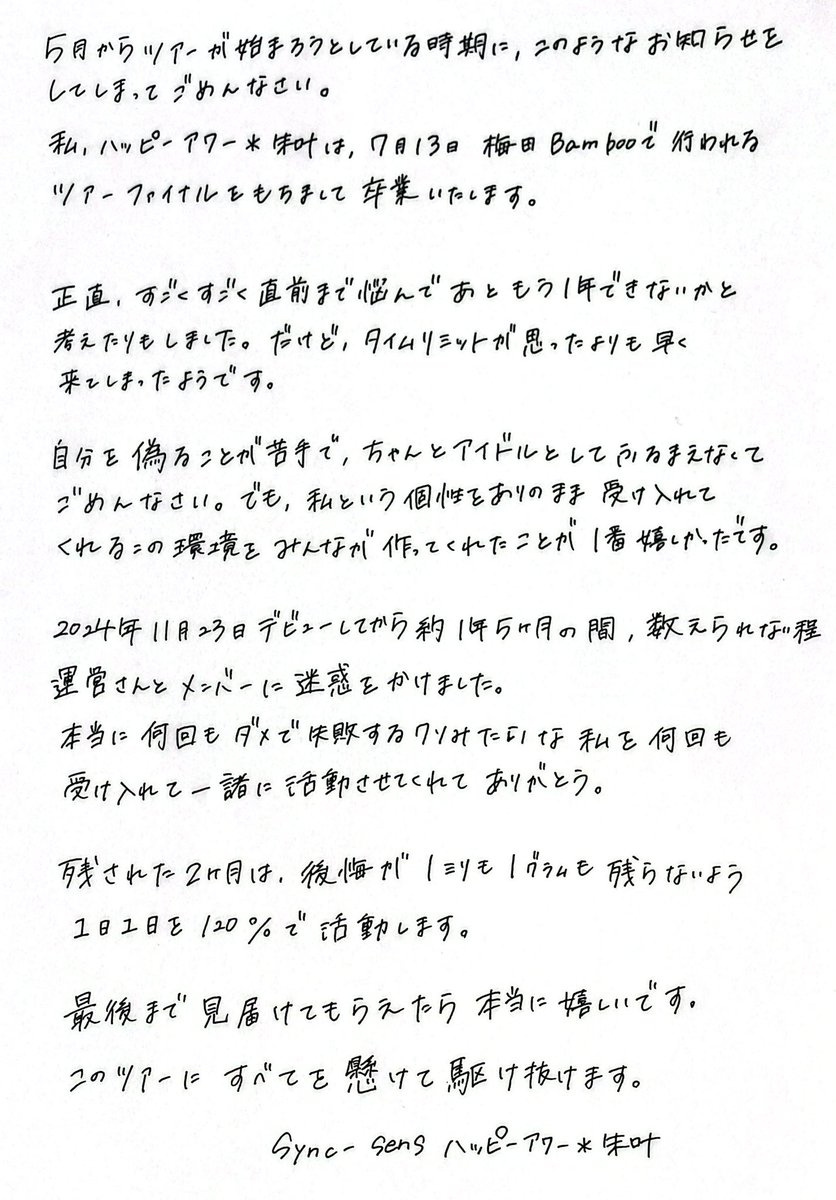 5月からツアーが始まろうとしている時期に、このようなお知らせを
してしまってごめんなさい。
私、ハッピーアワー*朱叶は、7月13日 梅田Bambooで行われる
ツアーファイナルをもちまして卒業いたします。
正直、すごくすごく直前まで悩んであともう1年できないかと
考えたりもしました。だけど、タイムリミットが思ったよりも早く
来てしまったようです。
自分を偽ることが苦手で、ちゃんとアイドルとしてふるまえなくて
ごめんなさい。でも、私という個性をありのまま受け入れて
くれるこの環境をみんなが作ってくれたことが1番嬉しかったです。
2024年11月23日デビューしてから約1年5ヶ月の間、数えられない程
運営さんとメンバーに迷惑をかけました。
本当に何回もダメで失敗するクソみたいな私を何回も
受け入れて一諸に活動させてくれてありがとう。
残された2ヶ月は、後悔が1ミリも1グラムも残らないよう
1日1日を120%で活動します。
最後まで見届けてもらえたら本当に嬉しいです。
このツアーにすべてを懸けて駆け抜けます。
Sync-sens ハッピーアワー*朱叶